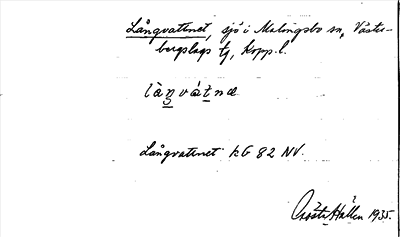 Långvattnet, sjö i Malingsbo sn, Väster-
bergslags tg, Kopp. l.
làŋvátnæ
Långvattnet kG 82 NV.
Gösta Hallén 1935